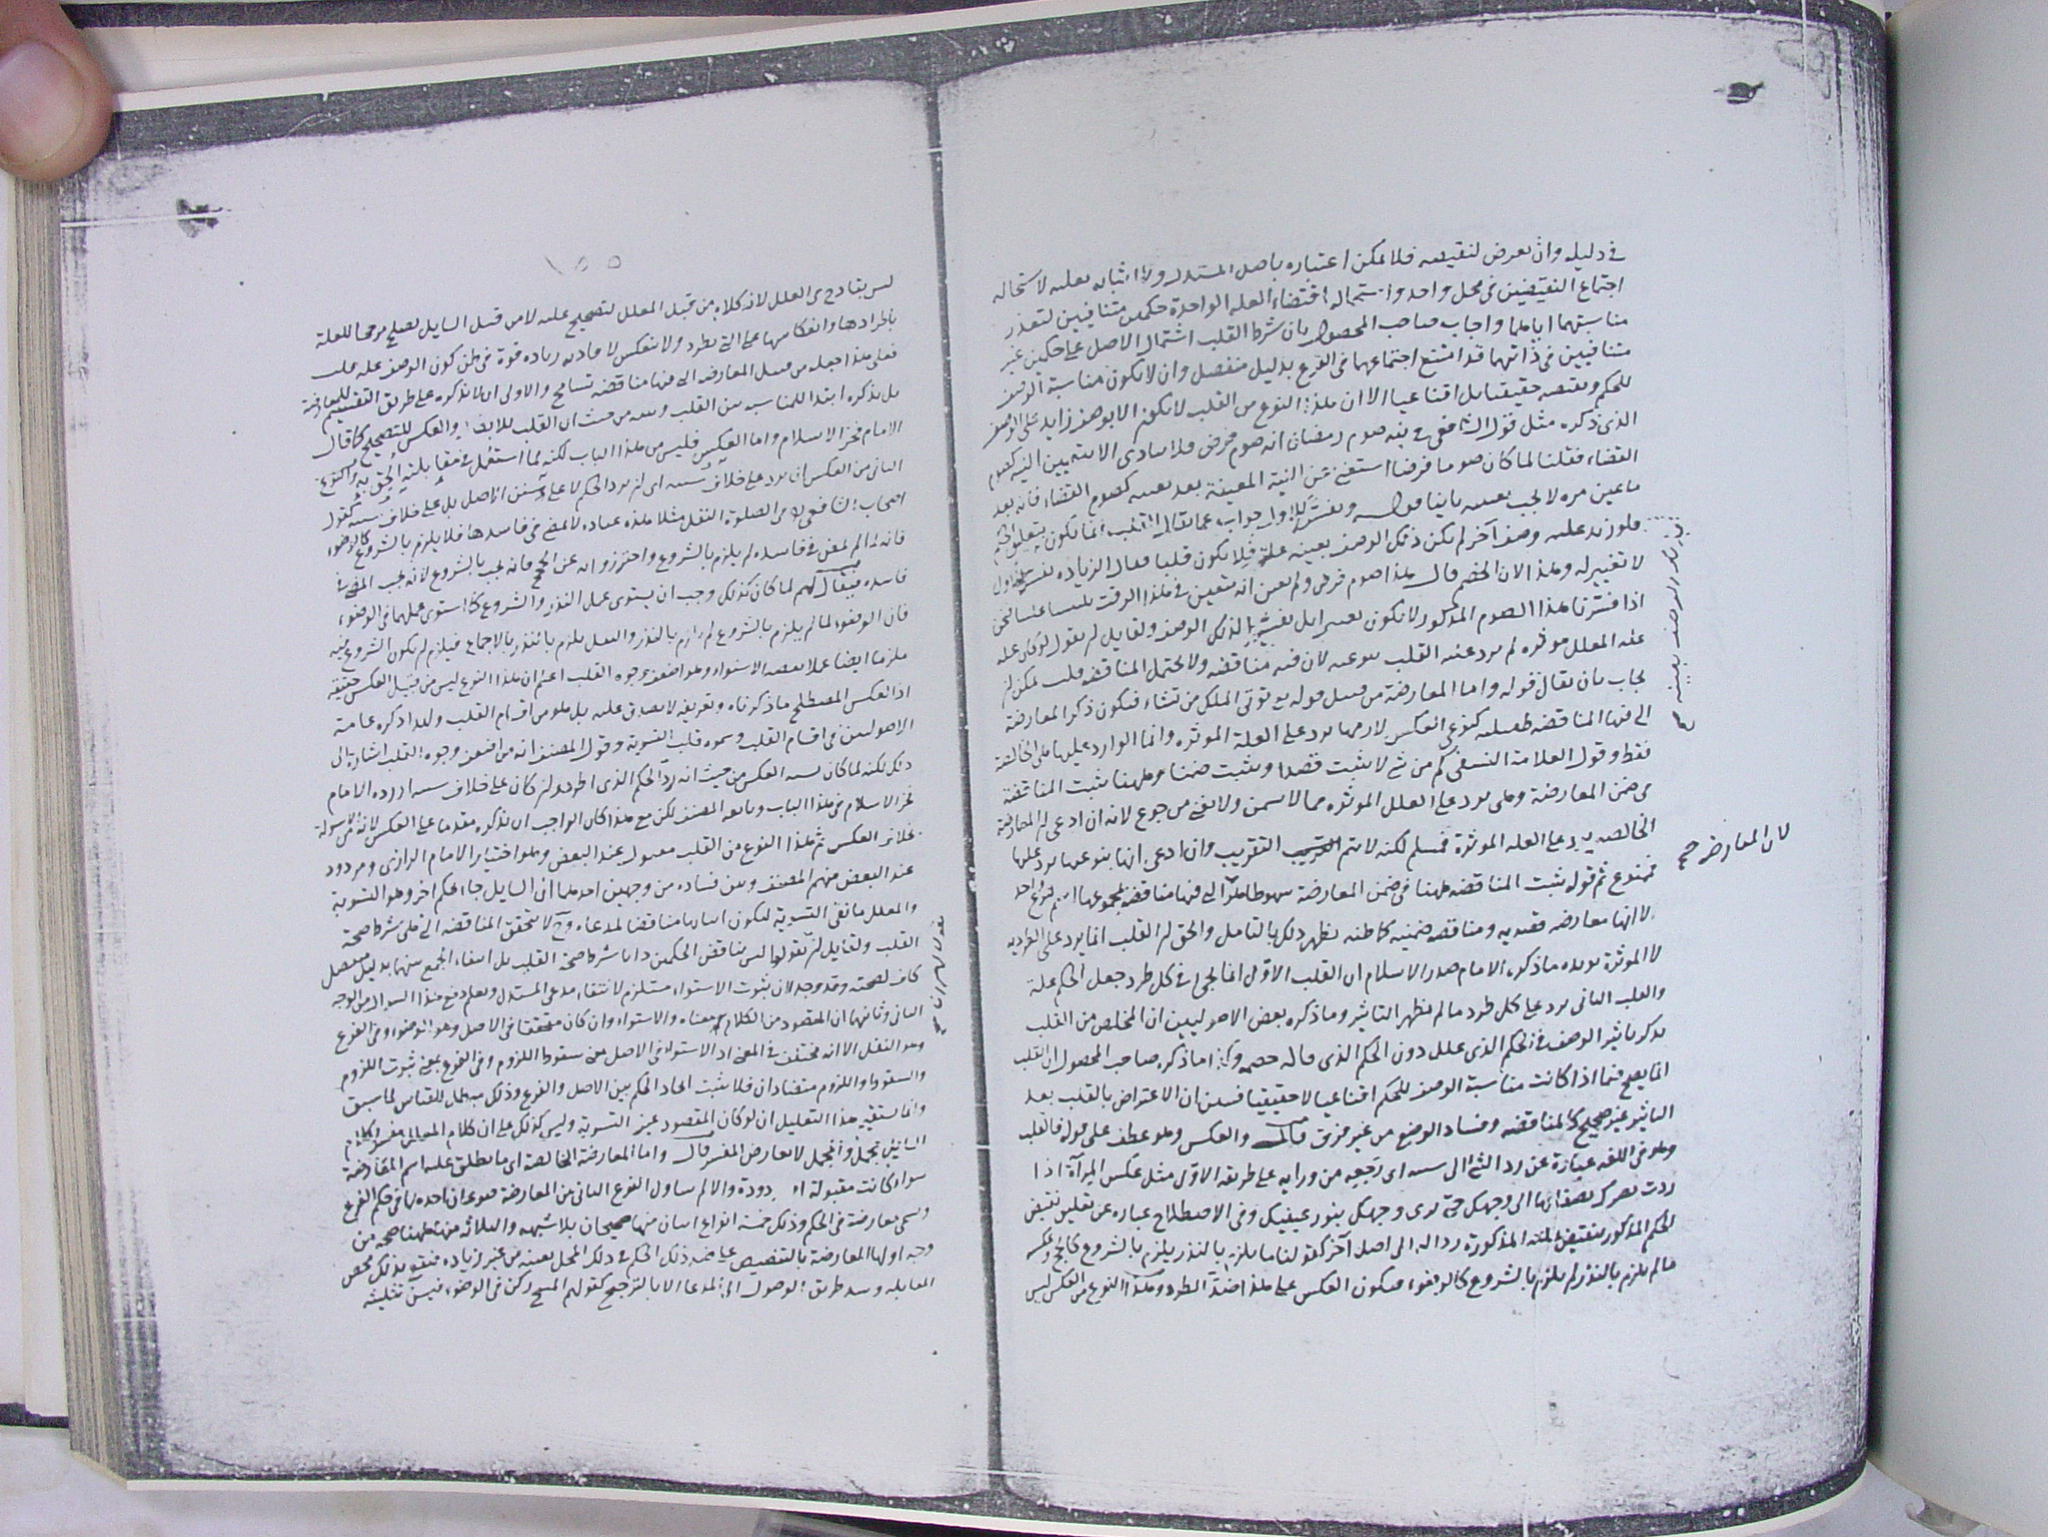 في دليله وان تعرض لنقيضه فلا يمكن اعتباره باصل المستدل ولا اثباته بعلته لاستحالة
اجتماع النقيضين في محل واحد واستحالة اقتضاء العلة الواحدة حكمين متنافيين لتعذر
مناسبتهما اياهما واجاب صاحب المحصول بان شرط القلب اشتمال الاصل على حكمين غير
متنافيين في ذاتهما قد امتنع اجتماعهما في الفرع بدليل منفصل وان لا يكون مناسبة الوصف
للحكم ونقيضه حقيقيا بل اقناعيا الا ان هذا النوع من القلب لا يكون الا بوصف زايد على الوصف
الذي ذكره مثل قول الشافعي في نية صوم رمضان انه صوم فرض فلا يتادى الا بتعيين النية كصوم
القضاء فقلنا لما كان صوما فرضا استغنى عن النية المعينة بعد تعينه كصوم القضاء فانه بعد
ما عين مرة لا يجب تعينه ثانيا
فلو زيد عليه وصف آخر لم يكن ذلك الوصف بعينه علة فلا يكون قلبا فقال الزيادة تفسير للاول
لا تغيير له وهذا لان الخصم قال هذا صوم فرض ولم يعين انه متعين في هذا الوقت
اذا فسرنا هذا الصوم المذكور لا يكون تغييرا بل تفسيرا لذلك الوصف ولقايل ان يقول لو كان علة
عند المعلل موثرة لم يرد عليه القلب بنوعيه لان فيه مناقضة ولا يحتمل المناقضة قلت يمكن ان
يجاب بان يقال قوله واما المعارضة من قبيل قوله تع توتي الملك من تشاء فيكون ذكر المعارضة
التي فيها المناقضة كنوعي العكس لا انها ترد على العلة الموثرة وانما الوارد عليها هي الخالصة
فقط وقول العلامة النسفي كم من شي لا يثبت قصدا ويثبت ضمنا وههنا يثبت المناقضة
في ضمن المعارضة وهي ترد على العلل الموثرة مما لا يسمن ولا يغني من جوع لانه ان ادعى ان المعارضة
الخالصة ترد على العلة الموثرة فمسلم لكنه لا يتم التقريب وان ادعى انها بنوعيها ترد عليها
فممنوع ثم قوله يثبت المناقضة ههنا في ضمن المعارضة سهو ظاهر اذ التي فيها مناقضة مجموعها اسم لنوع واحد
لا انها معارضة قصدية ومناقضة ضمنية كما ظنه يظهر ذلك بالتامل والحق ان القلب انما يرد على الطردية
لا الموثرة يويده ما ذكره الامام صدر الاسلام ان القلب الاول انما يجي في كل طرد جعل الحكم علة
والقلب الثاني يرد على كل طرد ما لم يظهر التاثير وما ذكره بعض الاصوليين ان المخلص من القلب
بذكر تاثير الوصف في الحكم الذي علل دون الحكم الذي قاله خصمه وكذا ما ذكره صاحب المحصول ان القلب
انما يصح فيما اذا كانت مناسبة الوصف للحكم اقناعيا لا حقيقيا فتبين ان الاعتراض بالقلب بعد
التاثير غير صحيح كالمناقضة وفساد الوضع من غير فرق قال والعكس وهو عطف على قوله فالقلب
وهو في اللغة عبارة عن رد الشي الى سننه اي رجعه من ورايه على طريقه الاول مثل عكس المرآة اذا
ردت بصرك بصفائها الى وجهك حتى ترى وجهك بنور عينيك وفي الاصطلاح عبارة عن تعليق نقيض
الحكم المذكور بنقيض العلة المذكورة رده الى اصل آخر كقولنا ما يلزم بالنذر يلزم بالشروع كالحج وعكسه
ما لم يلزم بالنذر لم يلزم بالشروع كالوضوء فيكون العكس على هذا ضد الطرد وهذا النوع من العكس ليس
لان المعارضة صح
١٥٥
ليس بقادح في العلل لانه كلام من قبل المعلل لتصحيح علته لا من قبل السايل يصلح مرجحا للعلة
باطرادها وانعكاسها على التي تطرد ولا تنعكس لافادته زيادة قوة في ظن كون الوصف علة
فعلى هذا جعله من قبيل المعارضة التي فيها مناقضة تسامح والاولى ان لا يذكره على طريق التقسيم للمعارضة
بل يذكره ابتدا للمناسبة بين القلب وبينه من حيث ان القلب للابطال والعكس للتصحيح كما قال
الامام فخر الاسلام واما العكس فليس من هذا الباب لكنه لما استعمل في مقابلة القلب الحق به والنوع
الثاني من العكس ان يرد على خلاف سننه اي ان يرد الحكم لا على سنن الاصل بل على خلاف سننه كقول
اصحاب الشافعي في الصلوة النفل مثلا هذه عبادة لا يمضي في فاسدها فلا يلزم بالشروع كالوضوء
فانه لما لم يمض في فاسده لم يلزم بالشروع واحترزوا به عن الحج فانه يجب بالشروع لانه يجب المضي في
فاسده فيقال لهم لما كان كذلك وجب ان يستوي عمل النذر والشروع كما استوى عملهما في الوضوء
فان الوضوء لما لم يلزم بالشروع لم يلزم بالنذر والنفل يلزم بالنذر بالاجماع فيلزم ان يكون الشروع فيه
ملزما ايضا عملا بقضية الاستواء وهو اضعف وجوه القلب اعلم ان هذا النوع ليس من قبيل العكس حقيقة
اذ العكس المصطلح ما ذكرناه وتعريفه لا يصدق عليه بل هو من اقسام القلب ولهذا ذكره عامة
الاصوليين في اقسام القلب وسموه قلب التسوية وقول المصنف انه من اضعف وجوه القلب اشارة الى
ذلك لكنه لما كان يشبه العكس من حيث انه رد الحكم الذي اطرد وان كان على خلاف سننه اورده الامام
فخر الاسلام في هذا الباب وتابعه المصنف لكن مع هذا كان الواجب ان يذكره مقدما على العكس لانه من الاسولة
بخلاف العكس ثم هذا النوع من القلب مقبول عند البعض وهو اختيار الامام الرازي ومردود
عند البعض منهم المصنف وبين فساده من وجهين احدهما ان السايل جاء بحكم اخر وهو التسوية
والمعلل ما نفى التسوية ليكون اثباتها مناقضا لمدعاه وح لا يتحقق المناقضة التي هي شرط صحة
القلب ولقايل ان يقول ليس تناقض الحكمين ذاتا شرط صحة القلب بل انتفاء الجمع بينهما بدليل منفصل
كاف لصحته وقد وجد لان ثبوت الاستواء مستلزم لانتفاء مدعى المستدل ويعلم دفع هذا السوال من الوجه
الثاني وثانيهما ان المقصود من الكلام معناه والاستواء وان كان متحققا في الاصل وهو الوضوء وفي الفرع
وهو النفل الا انه مختلف في المعنى اذ الاستواء في الاصل بمعنى سقوط اللزوم وفي الفرع بمعنى ثبوت اللزوم
والسقوط واللزوم متضادان فلا يثبت اتحاد الحكم بين الاصل والفرع وذلك مبطل للقياس لما سبق
وانما يستقيم هذا التعليل ان لو كان المقصود عين التسوية وليس كذلك على ان كلام المعلل مفسر وكلام
السايل مجمل والمجمل لا يعارض المفسر قال واما المعارضة الخالصة اي ما يطلق عليه اسم المعارضة
سواء كانت مقبولة او مردودة والا لم يتناول الفرع الثاني من المعارضة نوعان احدهما في حكم الفرع
ويسمى معارضة في الحكم وذلك خمسة انواع اثنان منها صحيحان بلا شبهة والثلاثة منها فيها صحة من
وجه اولها المعارضة بالتنصيص على ضد ذلك الحكم في ذلك المحل بعينه من غير زيادة فيقع بذلك محض
المقابلة وسد طريق الوصول الى المدعا الا بالترجيح كقولهم المسح ركن في الوضوء فيسن تثليثه